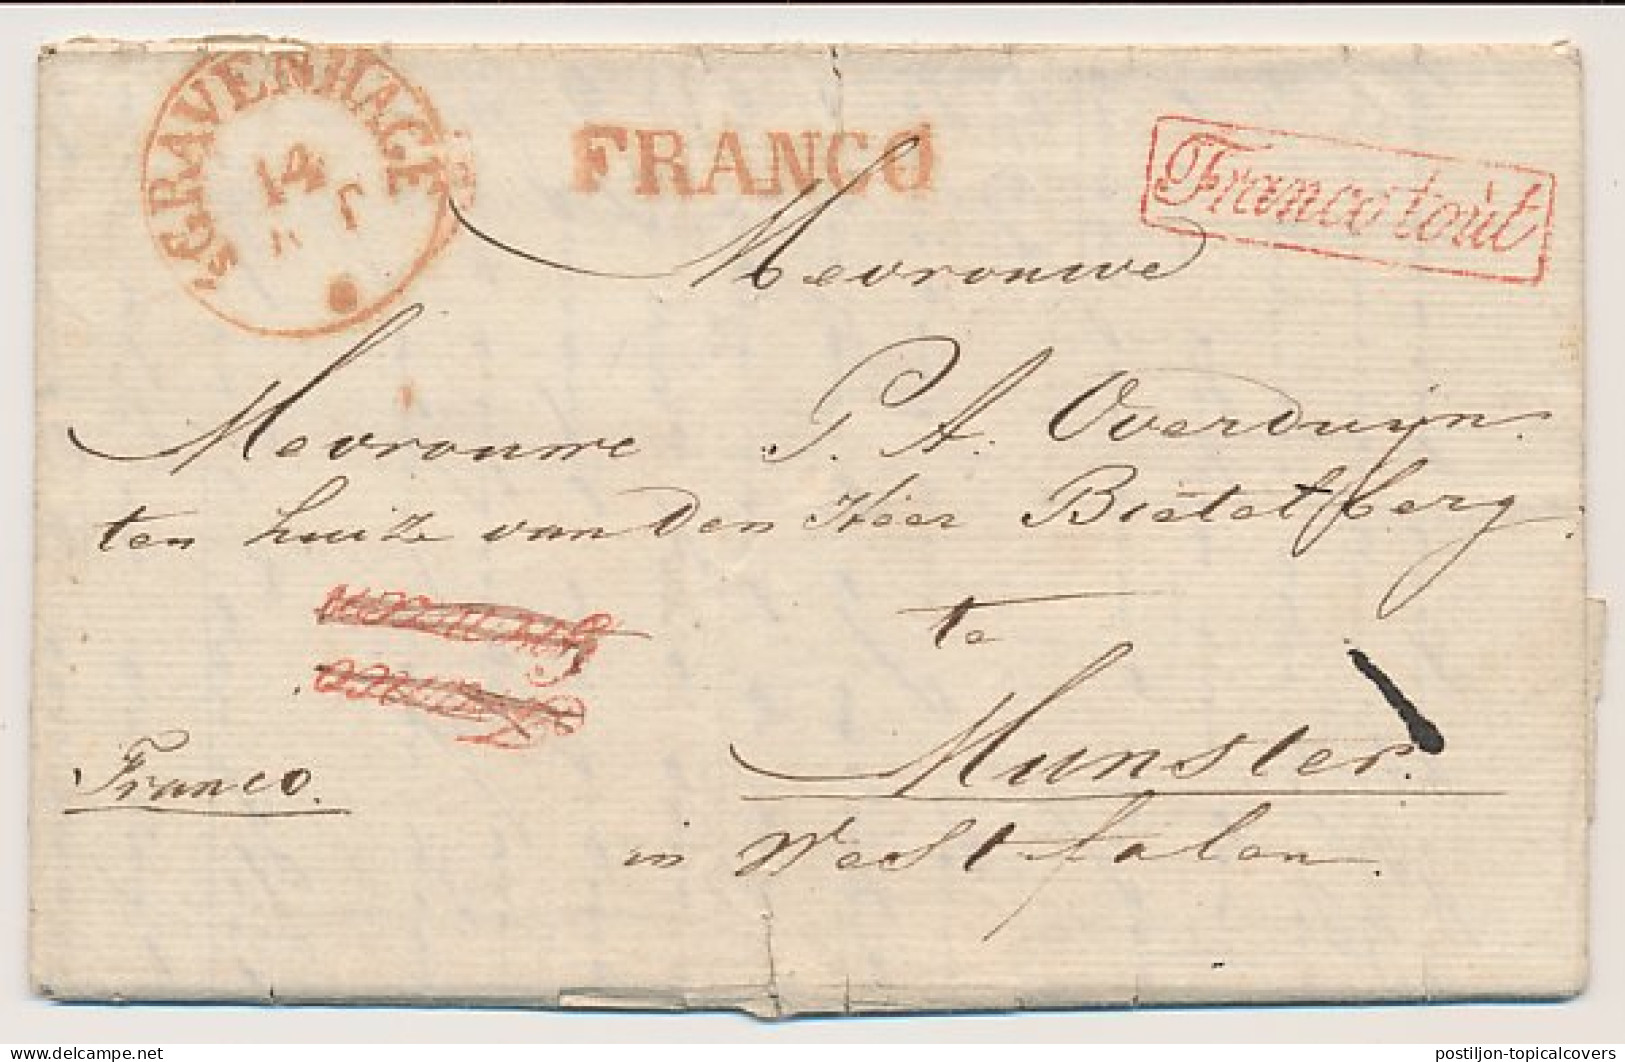 's GRAVENHAGE
14
FRANCO
Franco toùt
Mevrouwe
Mevrouwe P. A. Overduijn.
ten huize van den Heer Bietelberg
te
Munster.
in Westfalen.
Franco.
delcampe.net
postiljon-topicalcovers